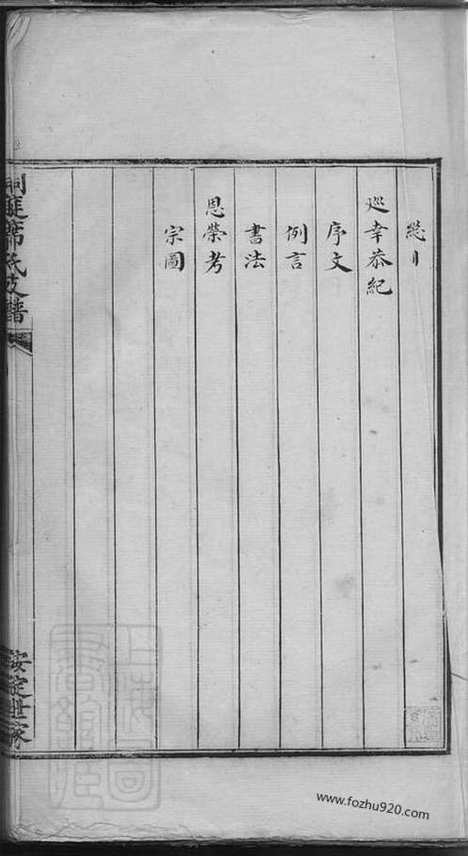 總目
巡幸恭紀
序文
例言
書法
恩榮考
宗圖
洞庭席氏支譜
安定世家
www.fozhu920.com